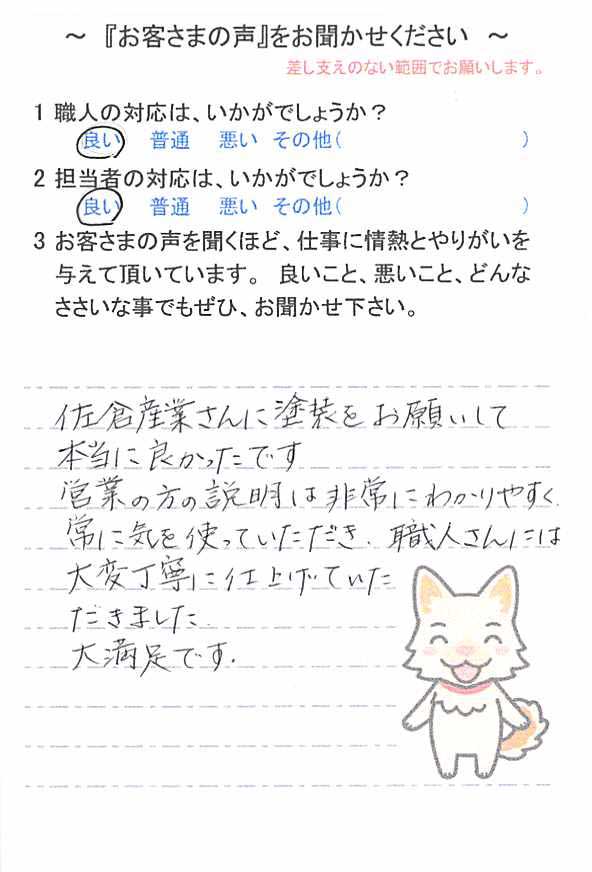 ～ 『お客さまの声』をお聞かせください ～
差し支えのない範囲でお願いします。
1 職人の対応は、いかがでしょうか？
良い 普通 悪い その他( )
2 担当者の対応は、いかがでしょうか？
良い 普通 悪い その他( )
3 お客さまの声を聞くほど、仕事に情熱とやりがいを
与えて頂いています。 良いこと、悪いこと、どんな
ささいな事でもぜひ、お聞かせ下さい。
佐倉産業さんに塗装をお願いして
本当に良かったです
営業の方の説明は非常にわかりやすく、
常に気を使っていただき、職人さんには
大変丁寧に仕上げていた
だきました。
大満足です。